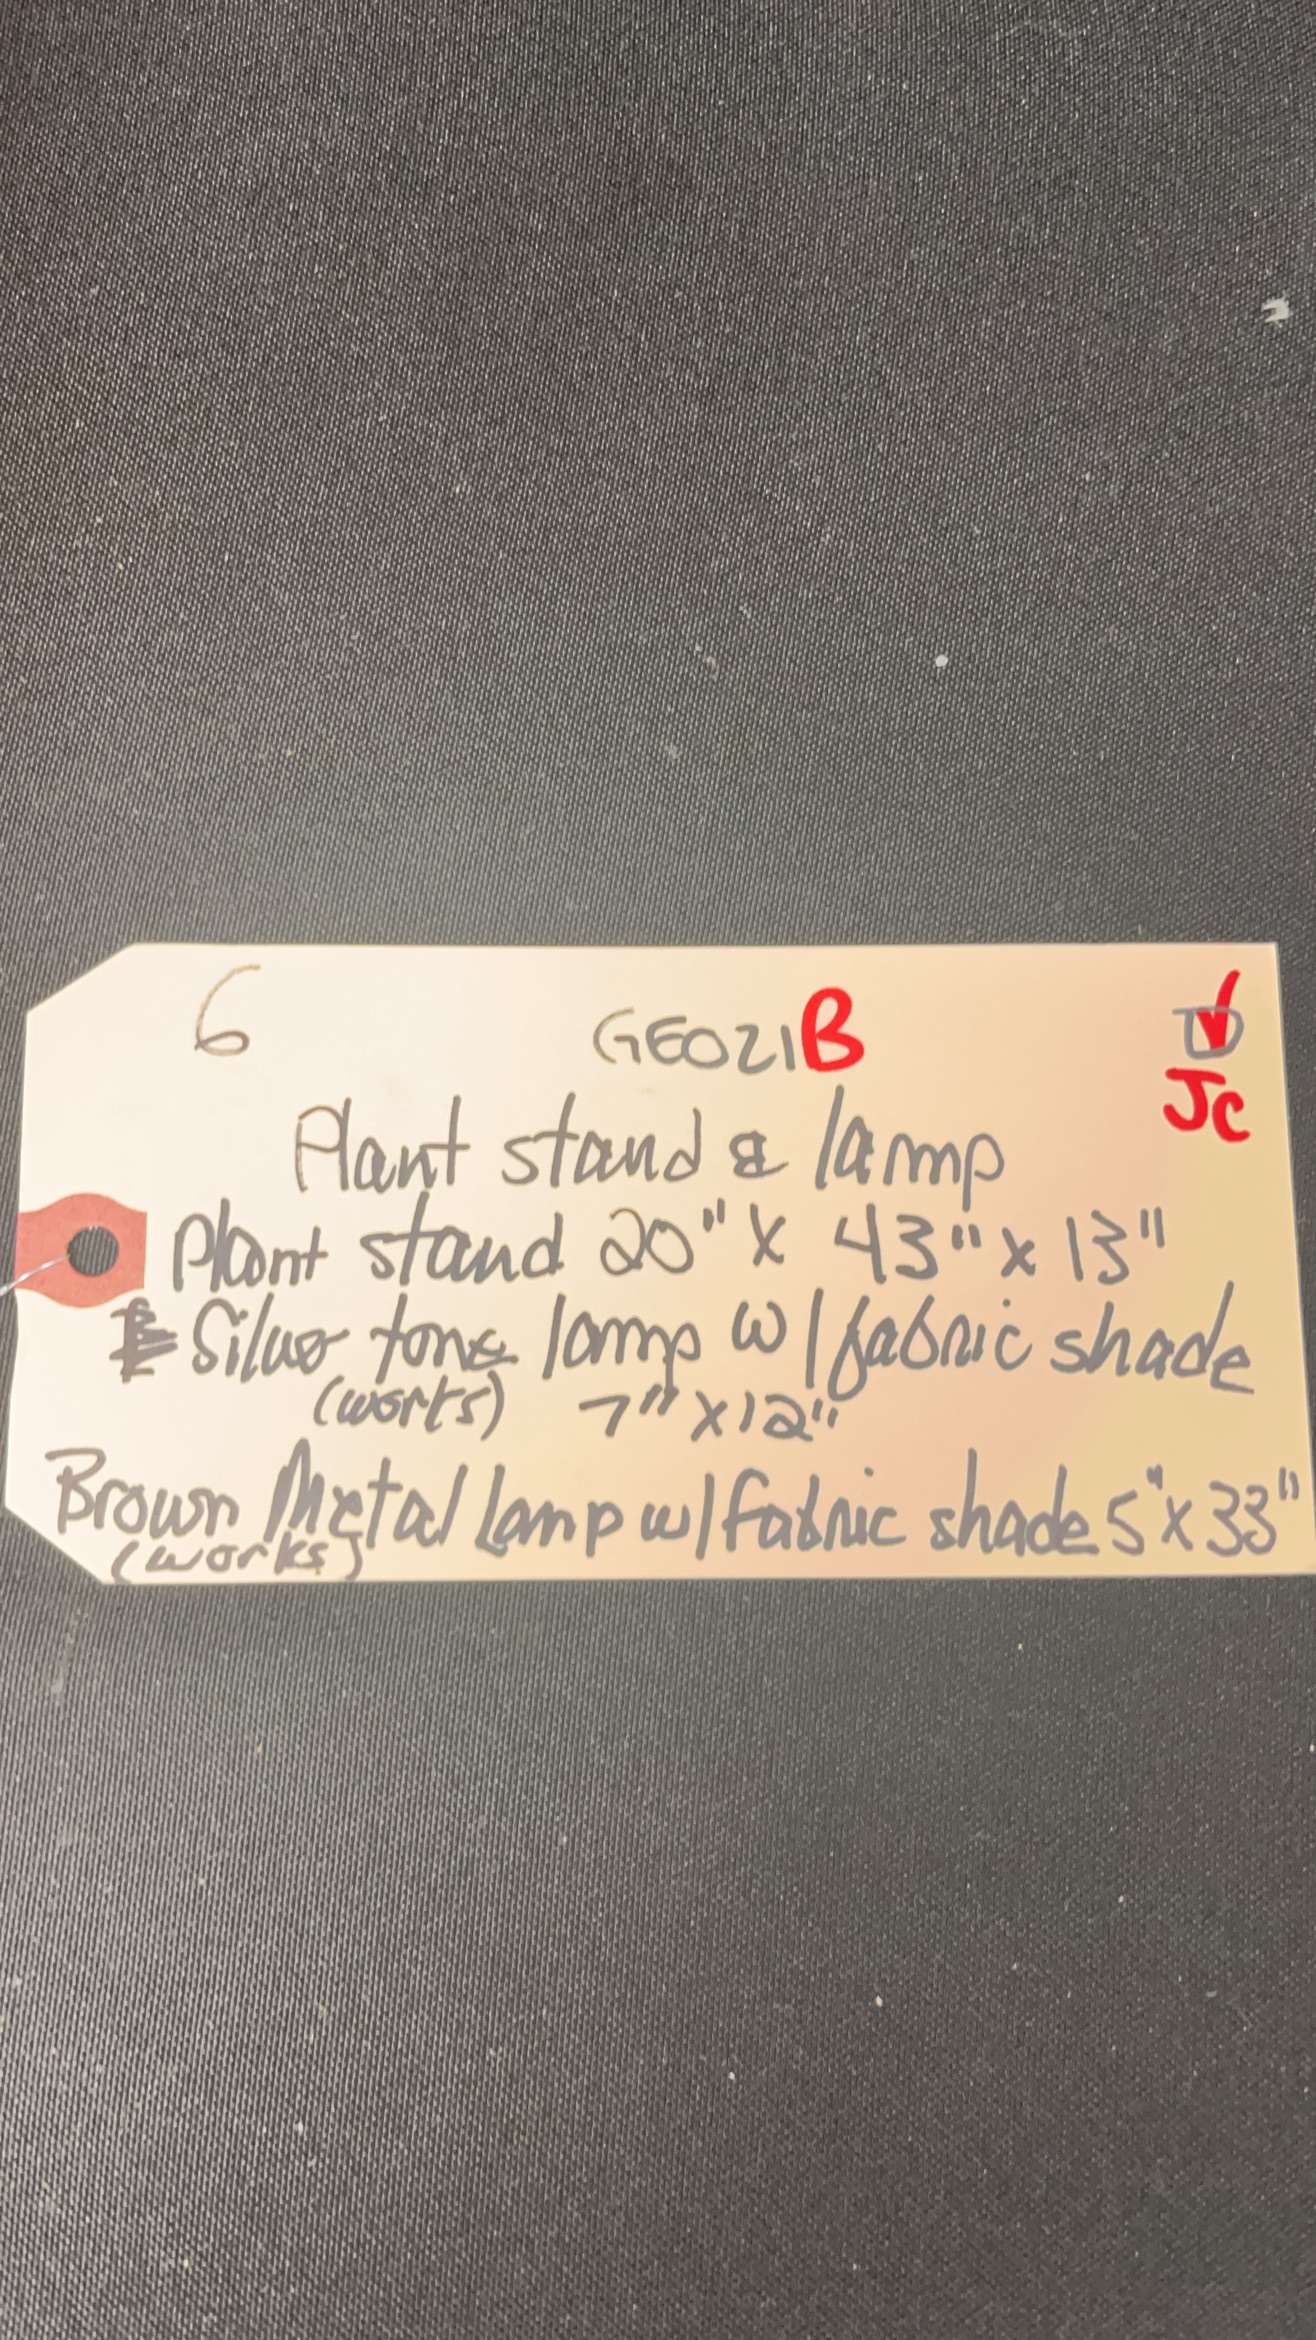 6 GEO21B
JC
Plant stand & lamp
Plant stand 20" X 43" x 13"
Silver tone lamp w/fabric shade
(works) 7" X 12"
Brown Metal lamp w/fabric shade 5" x 33"
(works)